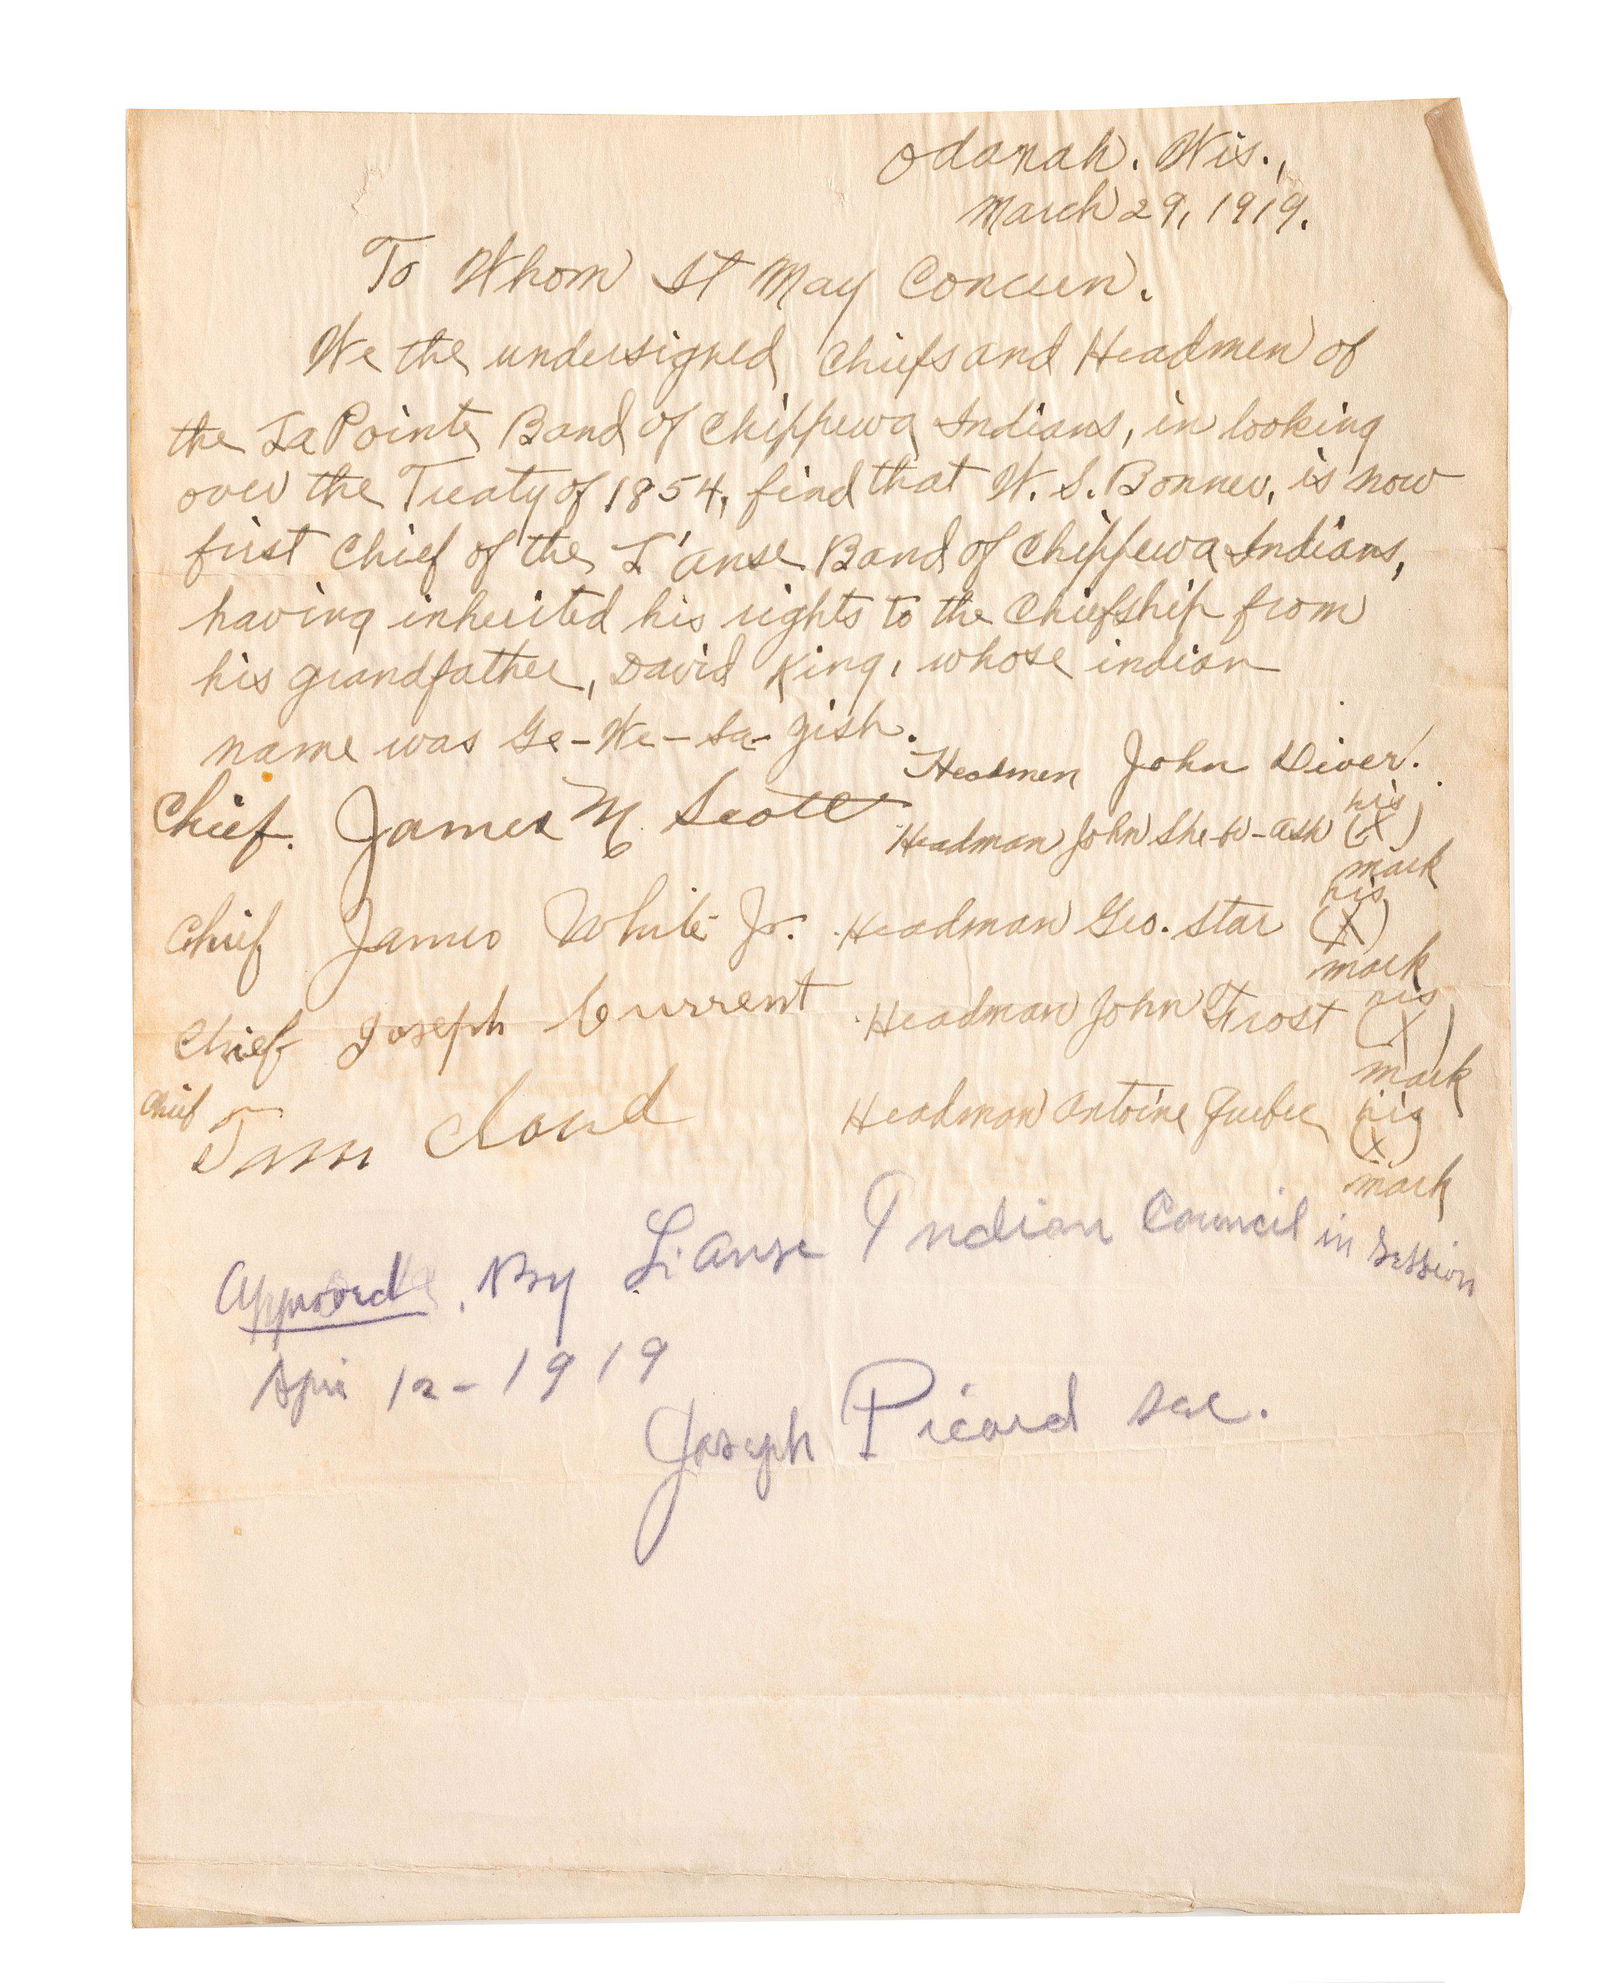 Odanah. Wis.,
March 29, 1919.
To Whom It May Concern.
We the undersigned Chiefs and Headmen of
the La Pointe Band of Chippewa Indians, in looking
over the Treaty of 1854, find that W. S. Bonner, is now
first Chief of the L'anse Band of Chippewa Indians,
having inherited his rights to the Chiefship from
his grandfather, David King, whose indian
name was Ge-We-Sa-gish.
Headmen John Diver.
Chief. James M. Scott
Headman John She-w-ash his (X) mark
Chief James White Jr. Headman Geo. Star his (X) mark
Chief Joseph Current Headman John Frost his (X) mark
Chief Tom Cloud Headman Antoine Quebec his (X) mark
Approved. By L'anse Indian Council in session
Apri 12-1919
Joseph Picard sec.